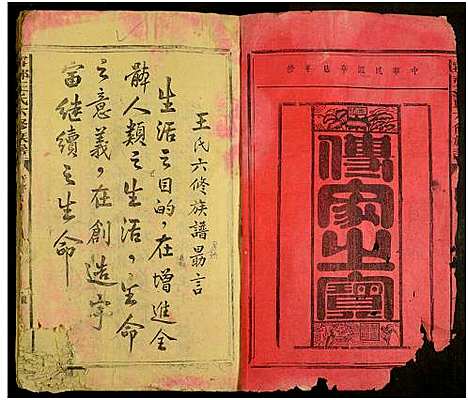 中華民國
傳家之寶
王氏六修族譜勗言
生活之目的，在增進全
體人類之生活，生命
之意義，在創造宇
宙繼續之生命